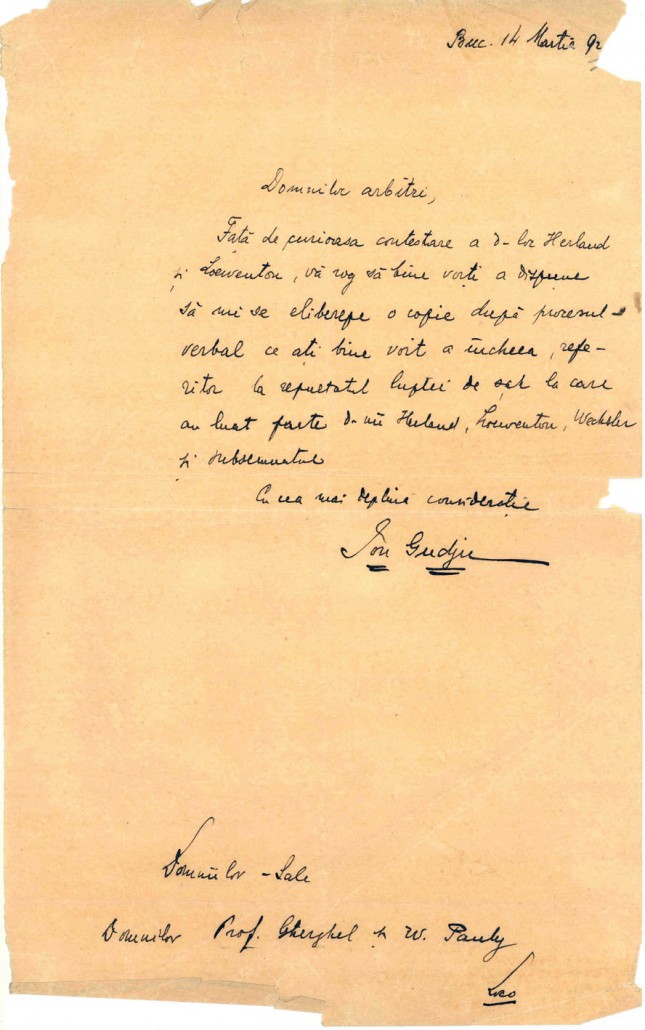 Buc. 14 Martie 92
Domnilor arbitri,
Față de curioasa contestare a d-lor Herland
și Loewenton, vă rog să bine voiți a dispune
să mi se elibereze o copie după procesul-
verbal ce ați bine voit a încheea, refe-
ritor la rezultatul luptei de șah la care
au luat parte d-nii Herland, Loewenton, Wechsler
și subsemnatul
Cu cea mai deplină considerație
Ion Gudju
Domniilor-Sale
Domnilor Prof. Gherghel și W. Pauly
Loco